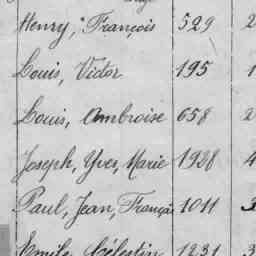 Henry, François 529 2
Louis, Victor 195 1
Louis, Ambroise 658 2
Joseph, Yves, Marie 1988 4
Paul, Jean, Françs 1011 3
Emile, Célestin 1231 3